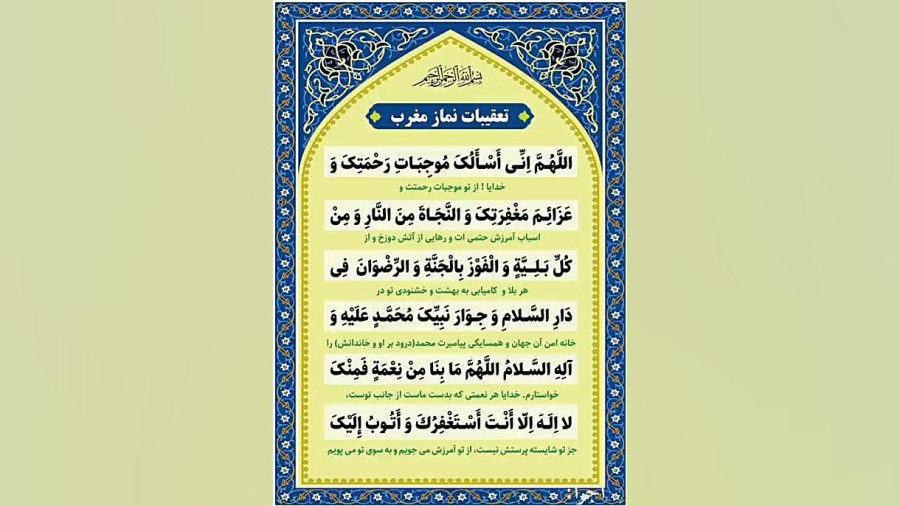 بسم الله الرحمن الرحیم
تعقیبات نماز مغرب
اللَّهُمَّ اِنِّی أَسْأَلُکَ مُوجِبَاتِ رَحْمَتِکَ وَ
خدایا ! از تو موجبات رحمتت و
عَزَائِمَ مَغْفِرَتِکَ وَ النَّجَاةَ مِنَ النَّارِ وَ مِنْ
اسباب آمرزش حتمی ات و رهایی از آتش دوزخ و از
کُلِّ بَلِیَّةٍ وَ الْفَوْزَ بِالْجَنَّةِ وَ الرِّضْوَانَ فِی
هر بلا و کامیابی به بهشت و خشنودی تو در
دَارِ السَّلامِ وَ جِوَارَ نَبِیِّکَ مُحَمَّدٍ عَلَیْهِ وَ
خانه امن آن جهان و همسایگی پیامبرت محمد(درود بر او و خاندانش) را
آلِهِ السَّلامُ اللَّهُمَّ مَا بِنَا مِنْ نِعْمَةٍ فَمِنْکَ
خواستارم. خدایا هر نعمتی که بدست ماست از جانب توست،
لا اِلَهَ اِلّا أَنْتَ أَسْتَغْفِرُكَ وَ أَتُوبُ إِلَیْکَ
جز تو شایسته پرستش نیست، از تو آمرزش می جویم و به سوی تو می پویم